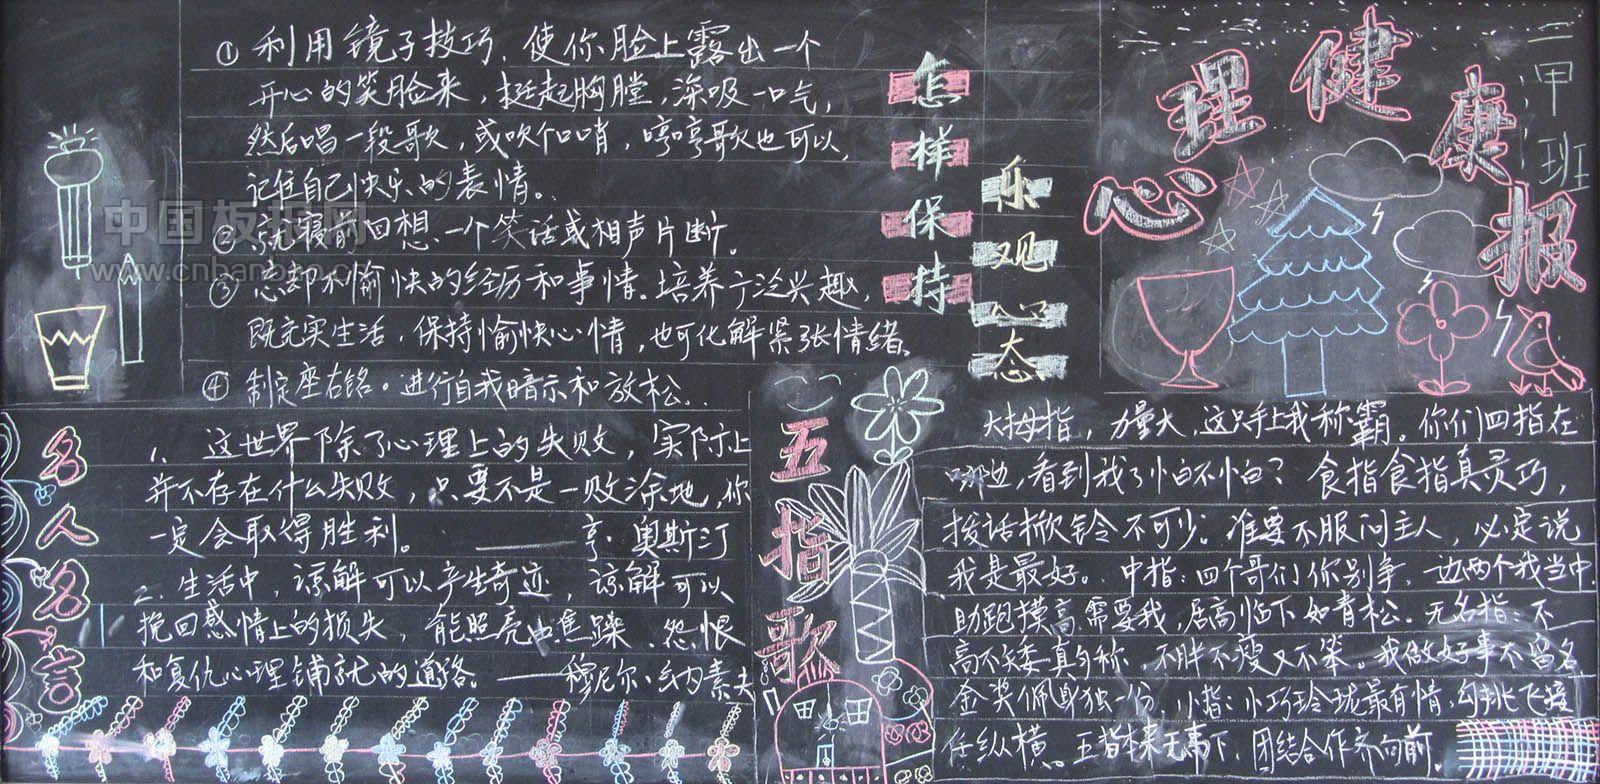 心理健康报
二甲班
怎样保持
乐观心态
① 利用镜子技巧、使你脸上露出一个
开心的笑脸来，挺起胸膛，深吸一口气，
然后唱一段歌，或吹个口哨，哼哼歌也可以，
记住自己快乐的表情。
② 就寝前回想一个笑话或相声片断。
③ 忘却不愉快的经历和事情。培养广泛兴趣，
既充实生活，保持愉快心情，也可化解紧张情绪。
④ 制定座右铭。进行自我暗示和放松..
名人名言
1、这世界除了心理上的失败，实际上
并不存在什么失败，只要不是一败涂地，你
一定会取得胜利。 ——亨·奥斯汀
2.生活中，谅解可以产生奇迹，谅解可以
挽回感情上的损失，能照亮由焦躁、怨恨
和复仇心理铺就的道路。——穆尼尔·纳素夫
五指歌
大拇指，力量大，这只手上我称霸。你们四指在
哪边，看到我了怕不怕？食指食指真灵巧，
拨话揿铃不可少。谁要不服问主人，必定说
我是最好。中指：四个哥们你别争，边两个我当中
助跑摸高需要我，居高临下如青松。无名指：不
高不矮真匀称，不胖不瘦又不笨。我做好事不留名
金奖佩身独一份。小指：小巧玲珑最有情，勾挑飞接
任纵横。五指本来无高下，团结合作齐向前。
中国板报网
www.cnbanbao.c